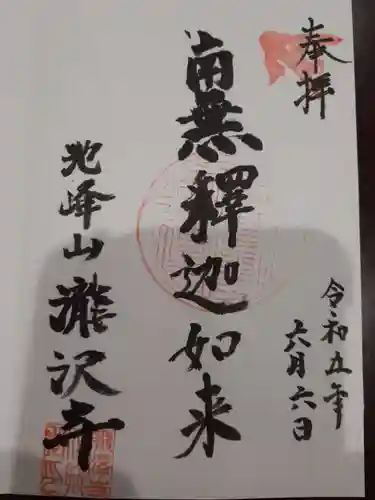 奉拝
令和五年
六月六日
南無釋迦如来
瀧沢寺